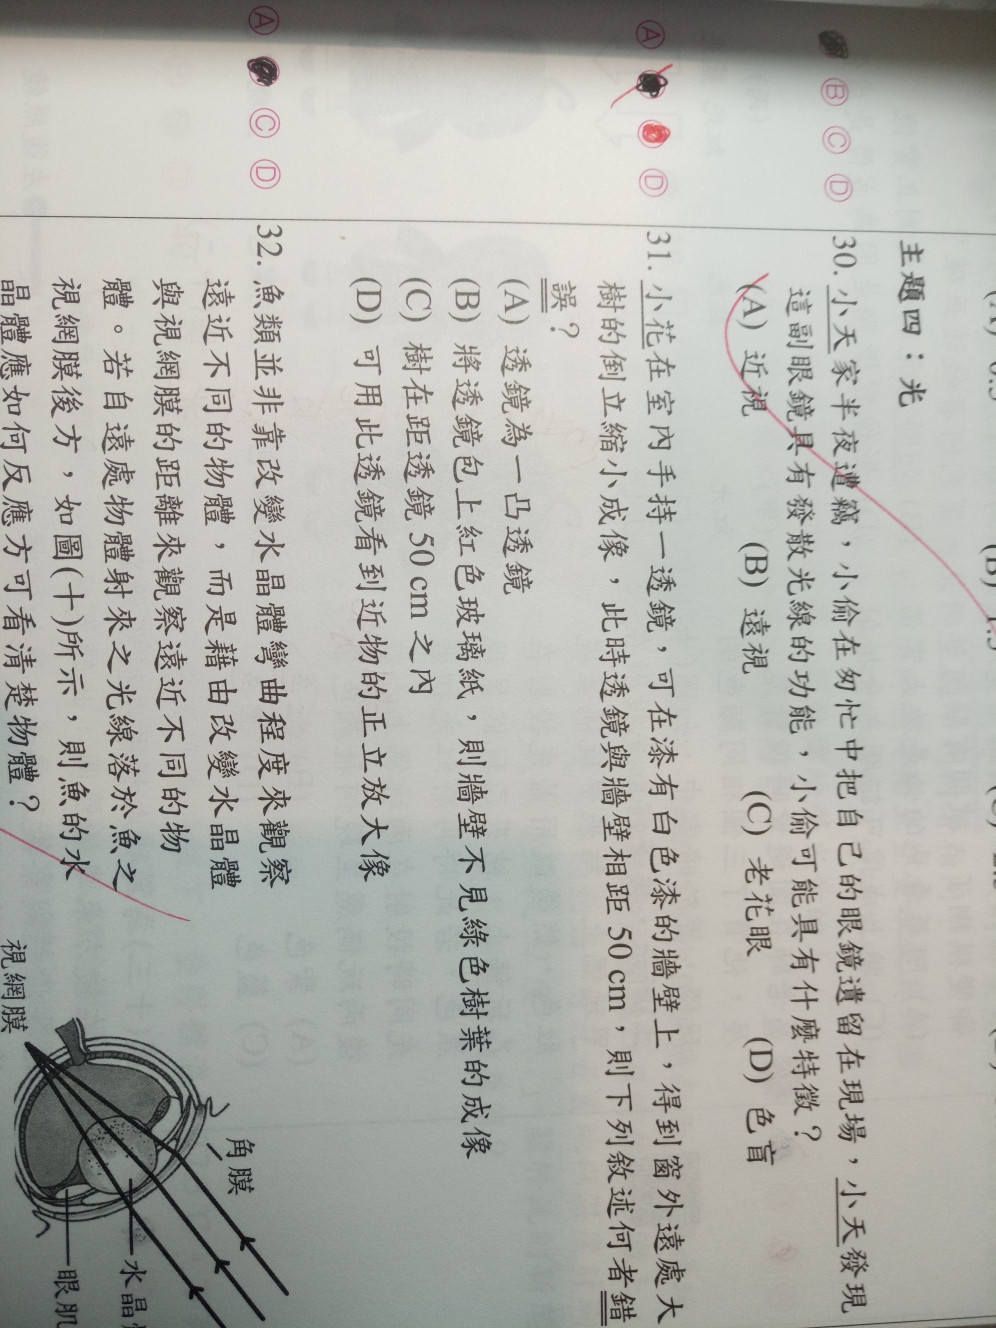 主題四：光
Ⓑ Ⓒ Ⓓ
30. 小天家半夜遭竊，小偷在匆忙中把自己的眼鏡遺留在現場，小天發現
這副眼鏡具有發散光線的功能，小偷可能具有什麼特徵？
(A) 近視 (B) 遠視 (C) 老花眼 (D) 色盲
Ⓐ Ⓓ
31. 小花在室內手持一透鏡，可在漆有白色漆的牆壁上，得到窗外遠處大
樹的倒立縮小成像，此時透鏡與牆壁相距 50 cm，則下列敘述何者錯
誤？
(A) 透鏡為一凸透鏡
(B) 將透鏡包上紅色玻璃紙，則牆壁不見綠色樹葉的成像
(C) 樹在距透鏡 50 cm 之內
(D) 可用此透鏡看到近物的正立放大像
Ⓐ Ⓒ Ⓓ
32. 魚類並非靠改變水晶體彎曲程度來觀察
遠近不同的物體，而是藉由改變水晶體
與視網膜的距離來觀察遠近不同的物
體。若自遠處物體射來之光線落於魚之
視網膜後方，如圖(十)所示，則魚的水
晶體應如何反應方可看清楚物體？
角膜
水晶
眼肌
視網膜